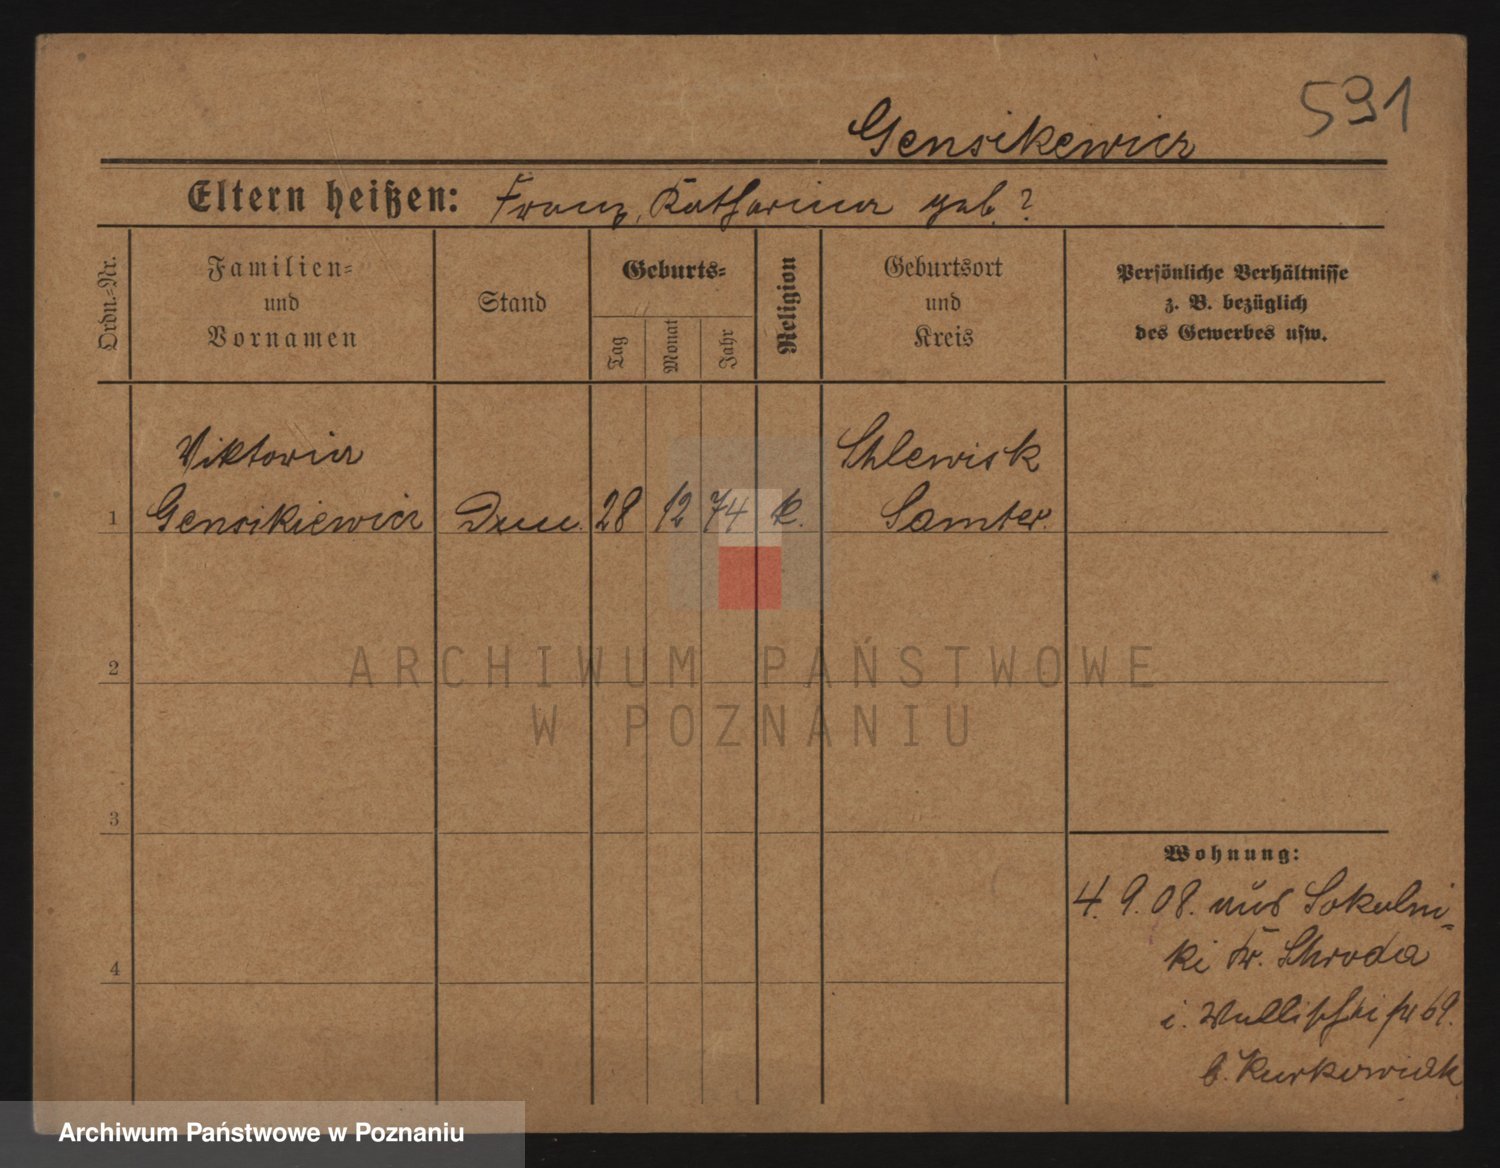 591
Gensikewicz
Eltern heißen: Franz, Katharina geb. ?
Ordn.=Nr.
Familien=
und
Vornamen
Stand
Geburts=
Tag
Monat
Jahr
Religion
Geburtsort
und
Kreis
Persönliche Verhältnisse
z. B. bezüglich
des Gewerbes usw.
Viktoria
Schlewisk
1 Gensikiewicz 28 12 74 k. Samter
2
3
4
Wohnung:
4. 9. 08. aus Sokolni-
ki Kr. Schroda
i. Wallischei 69.
b. Kurkowiak
ARCHIWUM PAŃSTWOWE
W POZNANIU
Archiwum Państwowe w Poznaniu